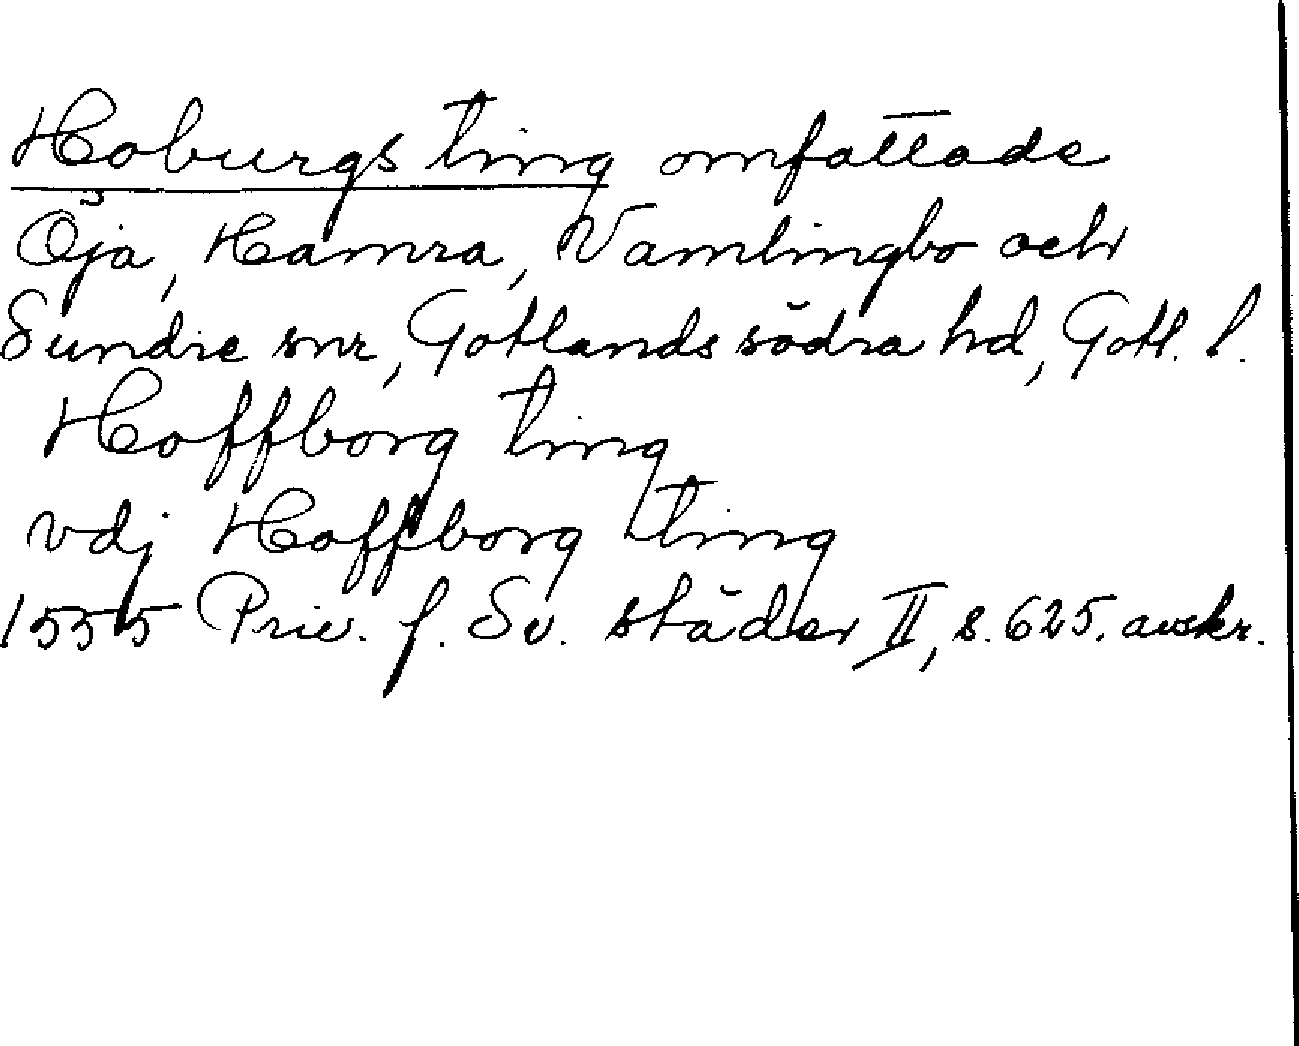 Hoburgs ting omfattade
Öja, Hamra, Vamlingbo och
Sundre snr, Gotlands södra hd, Gotl. l.
Hoffborg ting
vdj Hoffborg ting
1555 Priv. f. Sv. städer II, s. 625. avskr.